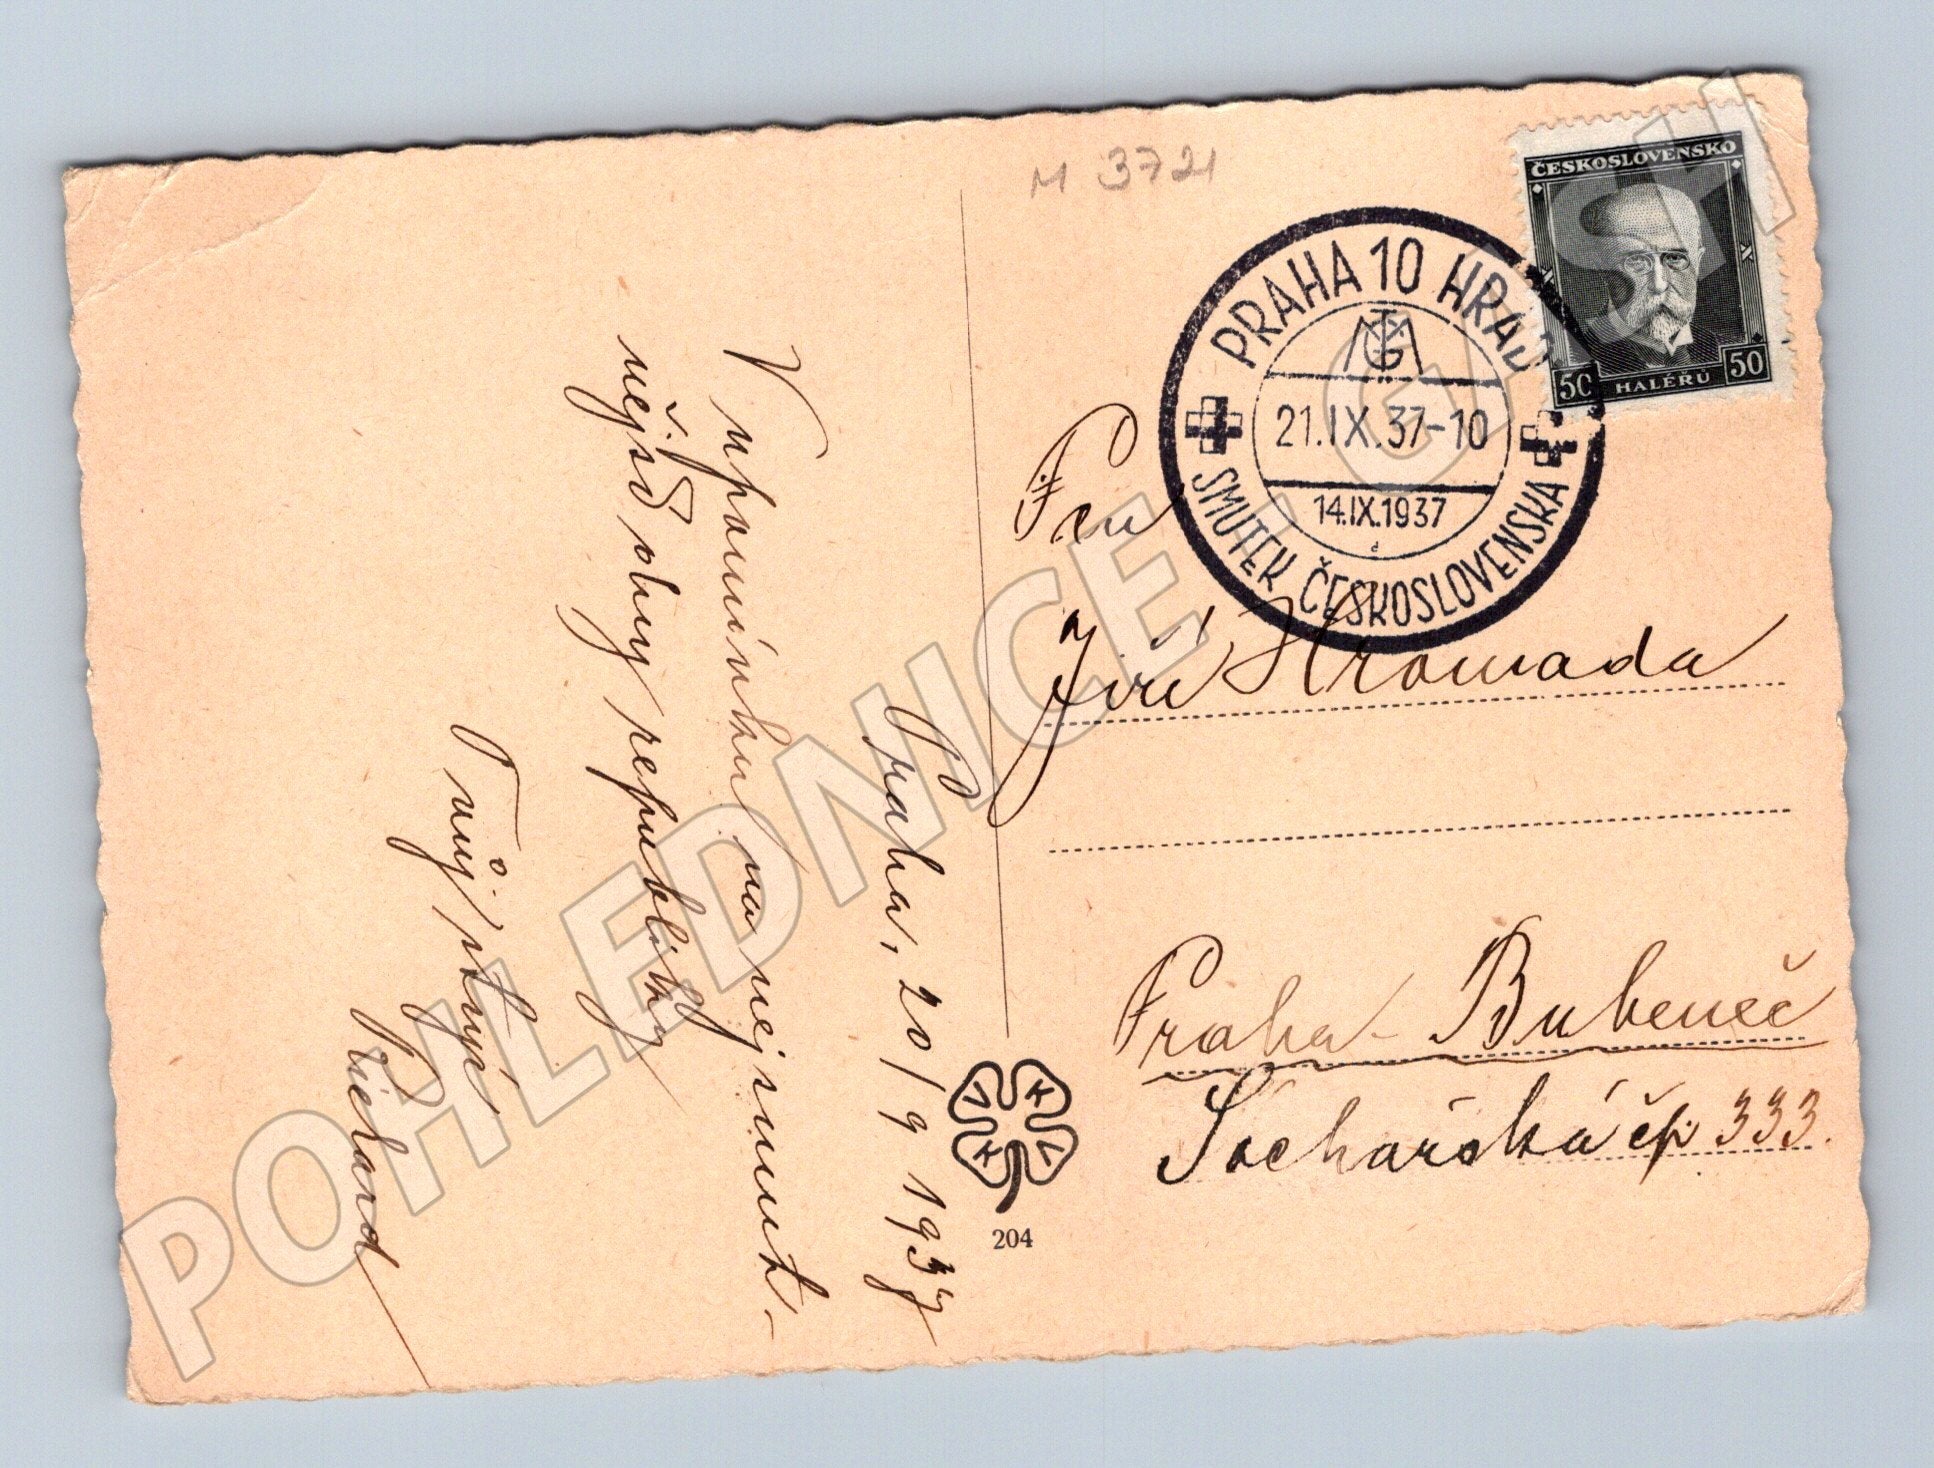 M 3721
ČESKOSLOVENSKO
50 HALÉŘŮ 50
PRAHA 10 HRAD
TGM
21.IX.37-10
14.IX.1937
SMUTEK ČESKOSLOVENSKA
Praha, 20/9 1937
V upomínku na nejsmut-
nější dny republiky
Tvůj strýc
Richard
Pan
Jiří Hromada
Praha-Bubeneč
Sochařská čp. 333.
VKKV
204
POHLEDNICE